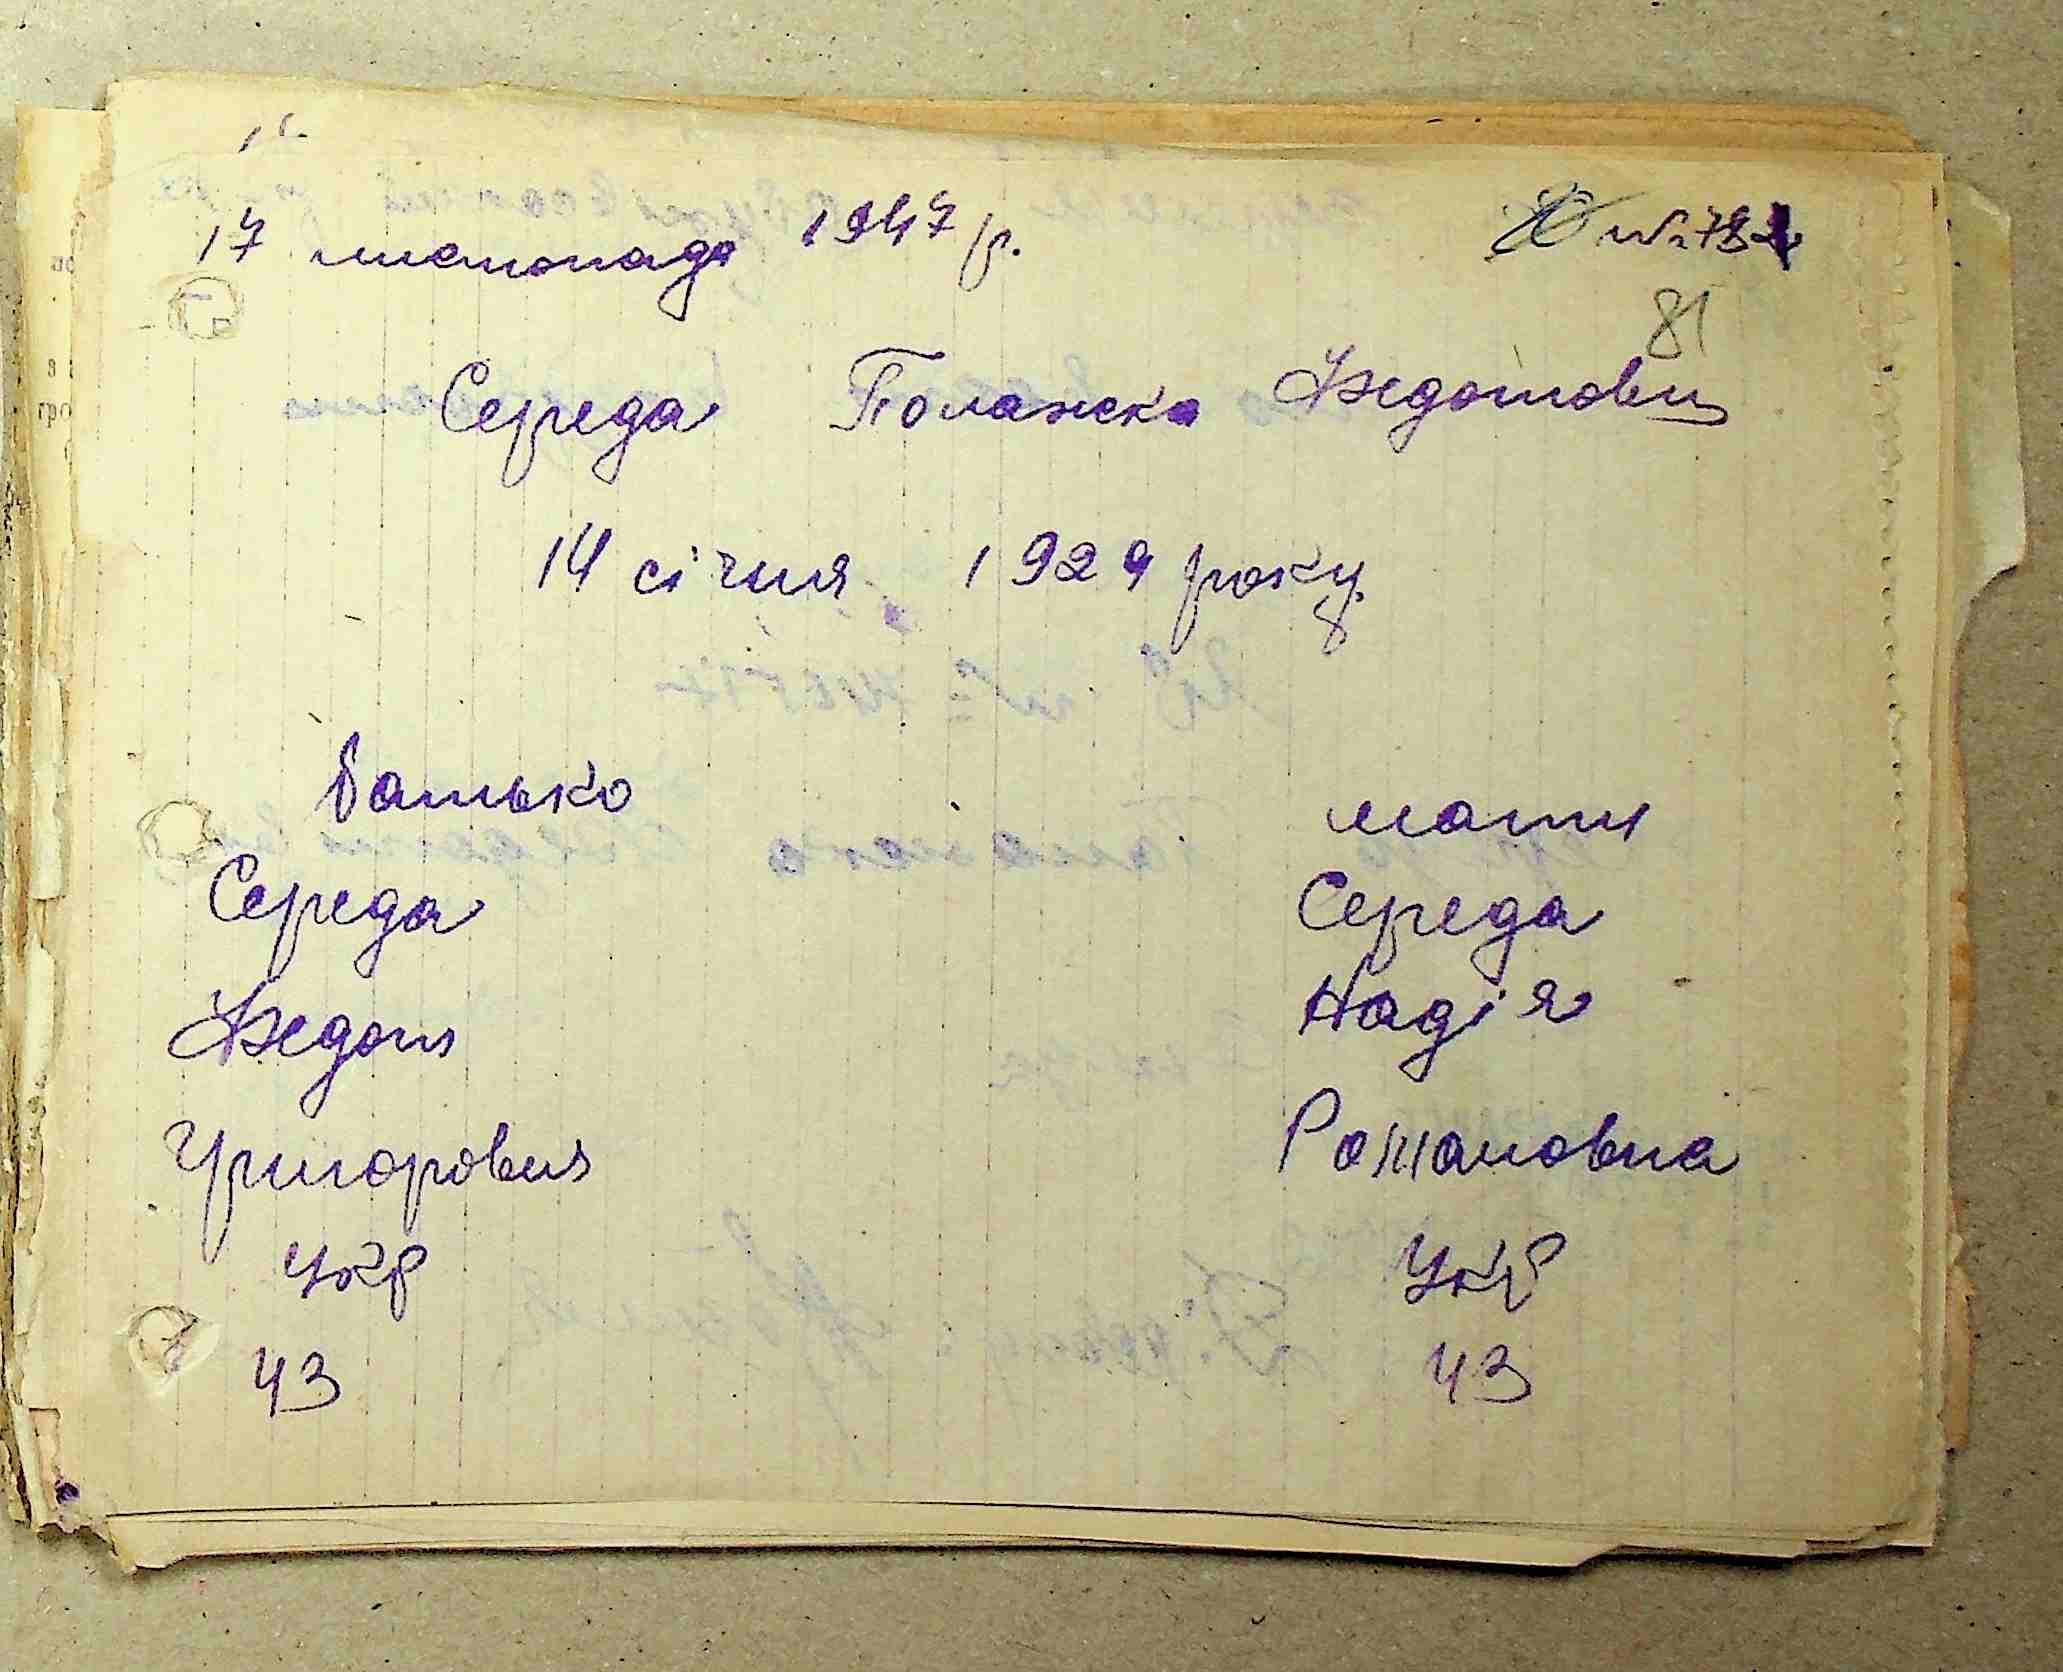 17 листопада 1947 р.
№ 78
81
Середа Поланска Федотовн
14 січня 1929 року
батько мати
Середа Середа
Федот Надія
Григорович Романовна
Укр Укр
43 43